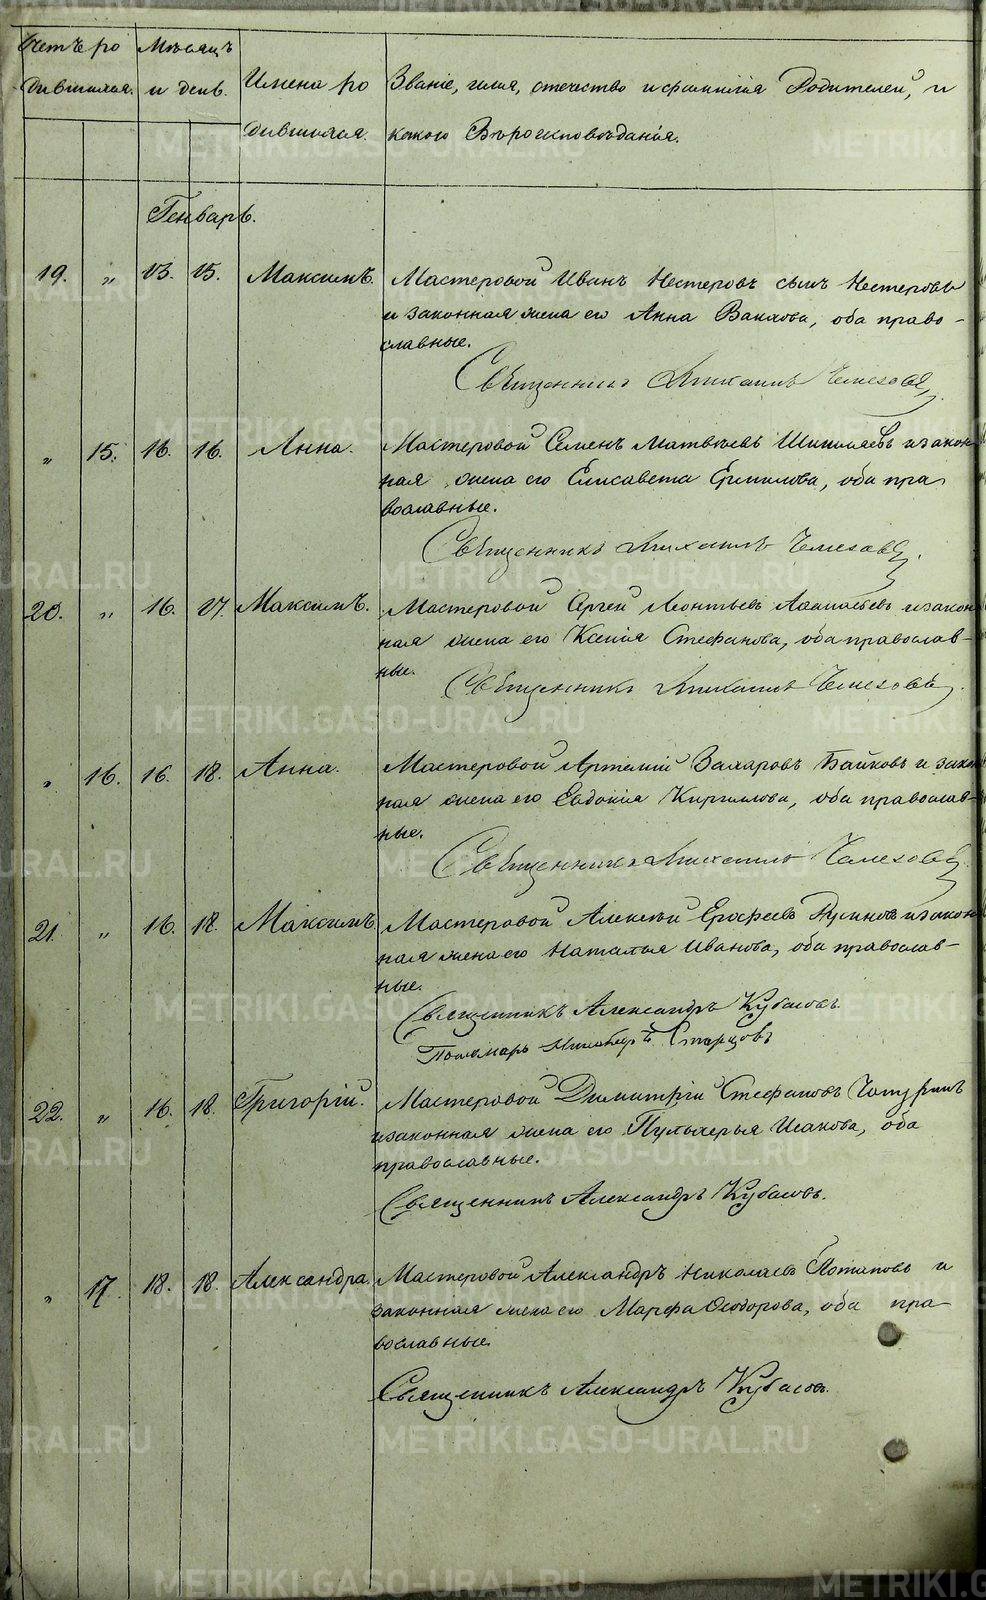 Счетъ ро Мѣсяцъ
дившихся. и день. Имена ро Званіе, имя, отечество и фамилія Родителей, и
дившихся. какого Вѣроисповѣданія.
Генварь.
19. „ 13. 15. Максимъ. Мастеровой Иванъ Нестеровъ сынъ Нестеровъ
и законная жена его Анна Вакхова, оба право-
славные.
Священникъ Михаилъ Чемезовъ.
„ 15. 16. 16. Анна. Мастеровой Семенъ Матвѣевъ и закон
ная жена его Елисавета Ермилова, оба пра
вославные.
Священникъ Михаилъ Чемезовъ.
20. „ 16. 17. Максимъ. Мастеровой Сергей Леонтьевъ и закон
ная жена его Ксенія Стефанова, оба православ-
ные.
Священникъ Михаилъ Чемезовъ.
„ 16. 16. 18. Анна. Мастеровой Артемій Захаровъ Байковъ и закон
ная жена его Евдокія Кириллова, оба православ-
ные.
Священникъ Михаилъ Чемезовъ.
21. „ 16. 18. Максимъ. Мастеровой Алексѣй Ерофеевъ и закон
ная жена его Наталья Иванова, оба православ-
ные.
Священникъ Александръ Кубасовъ.
Пономарь Старцовъ
22. „ 16. 18. Григорій. Мастеровой Димитрій Стефановъ
и законная жена его Пульхерья Исакова, оба
православные.
Священникъ Александръ Кубасовъ.
„ 17. 18. 18. Александра. Мастеровой Александръ Николаевъ Потаповъ и
законная жена его Марфа Ѳеодорова, оба пра-
вославные.
Священникъ Александръ Кубасовъ.
METRIKI.GASO-URAL.RU